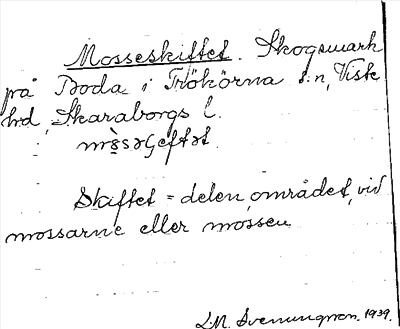 Mosseskiftet. Skogsmark
på Boda i Trökörna s:n, Viste
hrd, Skaraborgs l.
Skiftet = delen, området, vid
mossarne eller mossen
L.M. Svenungsson. 1939.